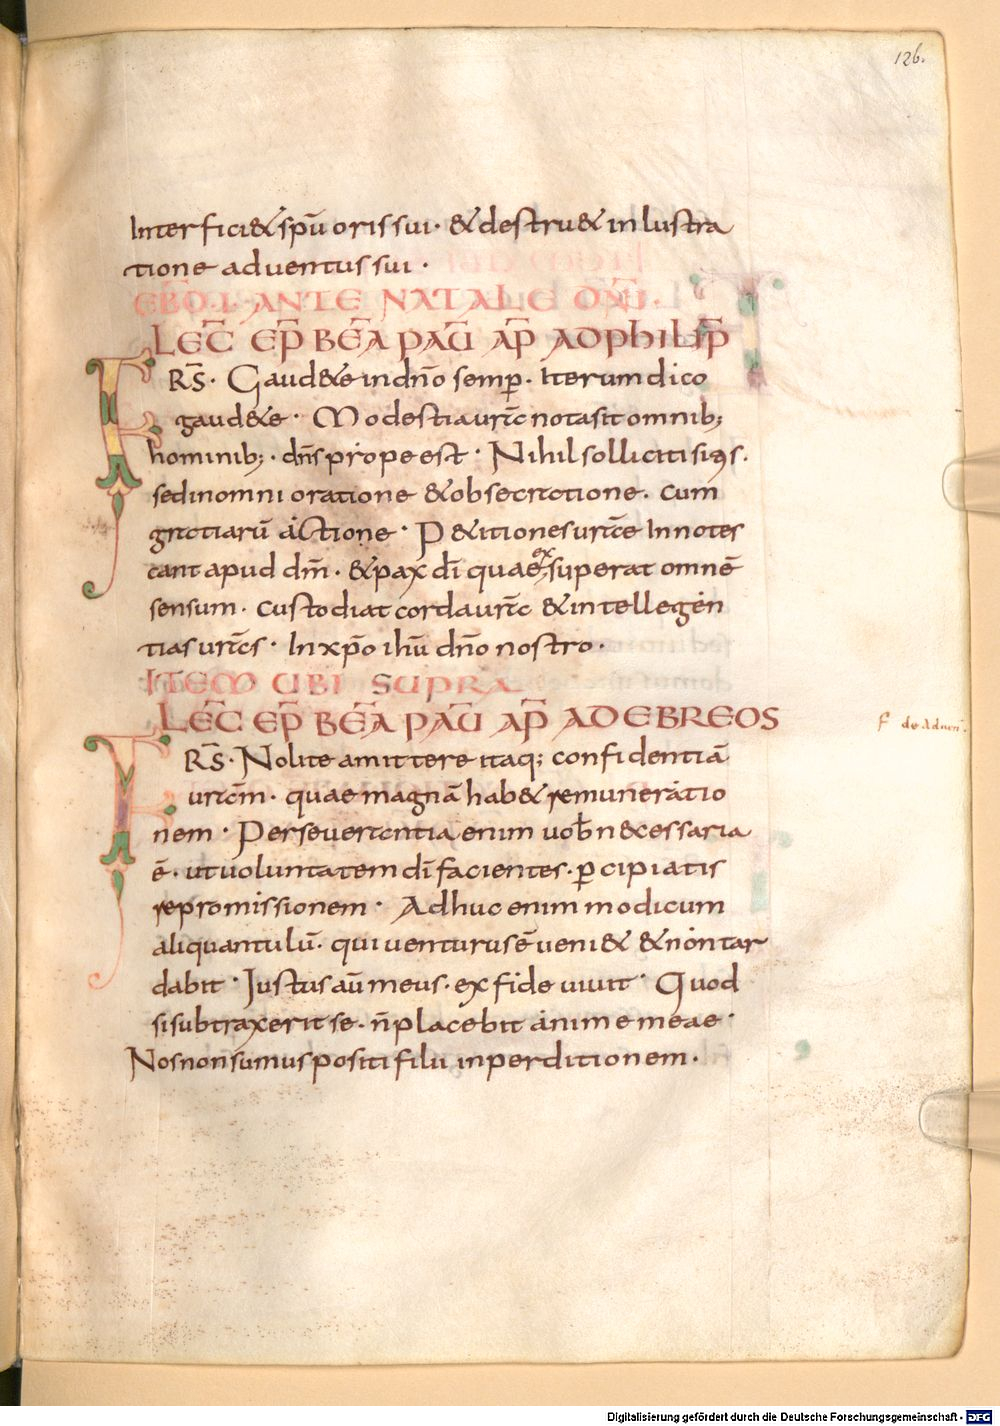 126.
Interfici& spū oris sui· & destru& inlustra
tione adventus sui·
EBD·I· ANTE NATALE DN̄I·
LEC̄ EP̄ BEĀ PAŪ AP̄ ADPHILIP̄
FRS̄· Gaud&e indn̄o semp̄· Iterum dico
gaud&e· Modestia urāe nota sit omnib;
hominib;· dn̄s prope est· Nihil solliciti sitis·
sed in omni oratione & obsecratione· cum
gratiarū actione· P&itiones urāe Innotes
cant apud dm̄· & pax dī quae exsuperat omnē
sensum· custodiat corda urā & intellegen
tias urās· In xp̄o ihū dn̄o nostro·
ITEM UBI SUPRA
LEC̄ EP̄ BEĀ PAŪ AP̄ AD EBREOS
FRS̄· Nolite amittere itaq; confidentiā
urām· quae magnā hab& remuneratio
nem· Perseverantia enim vob̄ necessaria
ē· ut voluntatem dī facientes· p̄cipiatis
repromissionem· Adhuc enim modicum
aliquantulū· qui venturus ē veni& & non tar
dabit· Justus aū meus· ex fide vivit· Quod
si subtraxerit se· n̄ placebit anime meae·
Nos non sumus positi filii inperditionem·
F de Adven̄
Digitalisierung gefördert durch die Deutsche Forschungsgemeinschaft - DFG